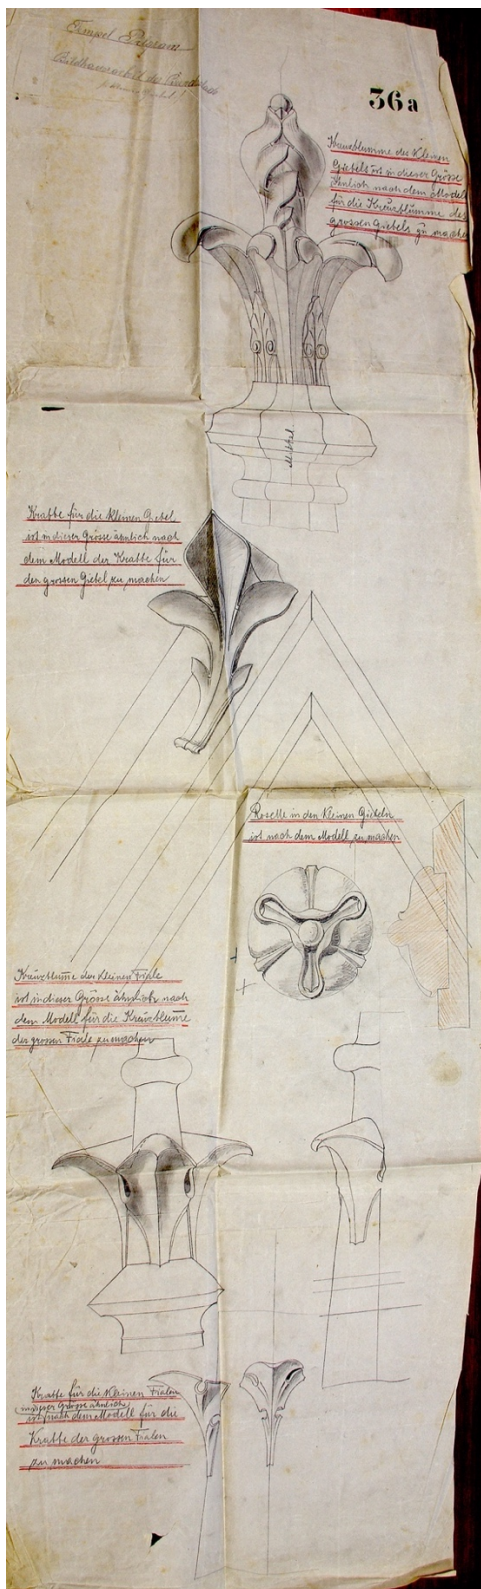 Tempel
Bildhauerarbeit der
36a
Kreuzblumme des kleinen
Giebels ist in dieser Grösse
ähnlich nach dem Modell
für die Kreuzblumme des
grossen Giebels zu machen
Mittel
Krabbe für die kleinen Giebel
ist in dieser Grösse ähnlich nach
dem Modell der Krabbe für
den grossen Giebel zu machen
Rosette in den kleinen Giebeln
ist nach dem Modell zu machen
Kreuzblum̅e der kleinen Fiale
ist in dieser Grösse ähnlich nach
dem Modell für die Kreuzblum̅e
der grossen Fiale zu machen
Krabbe für die kleinen Fialen
in dieser Grösse ähnlich
ist nach dem Modell für die
Krabbe der grossen Fialen
zu machen